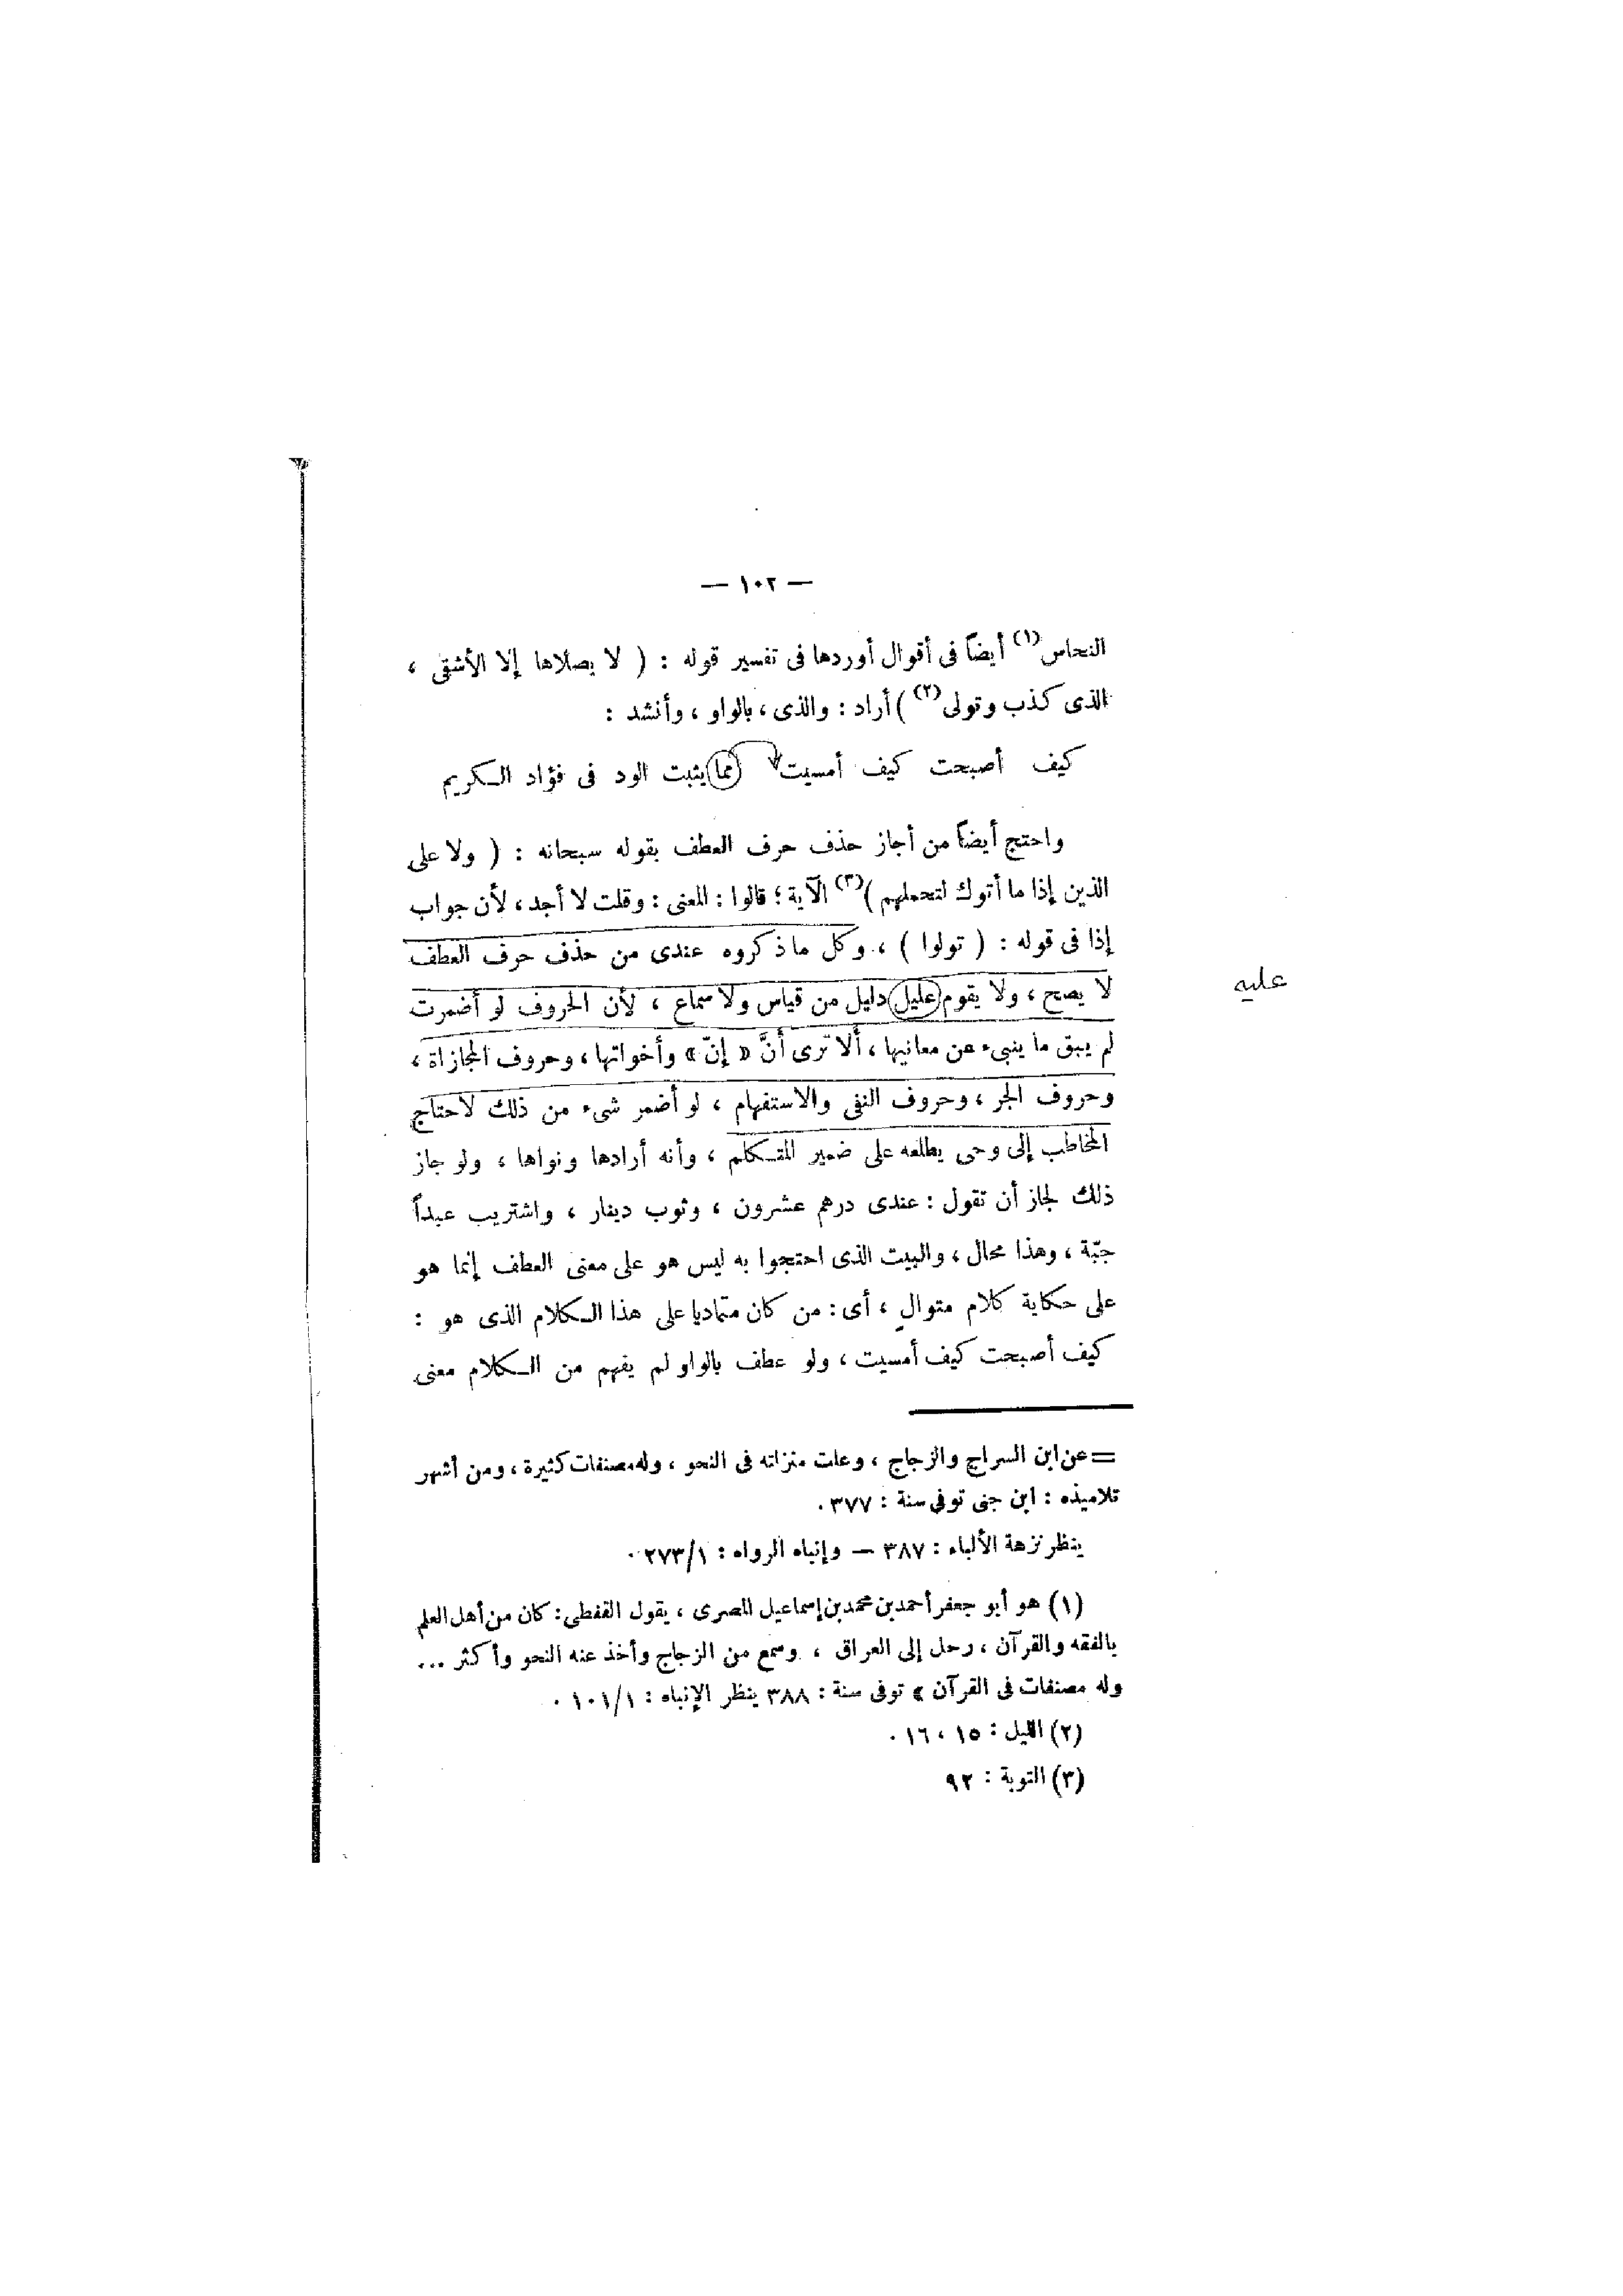 — ١٠٢ —
النحاس(١) أيضاً فى أقوال أوردها فى تفسير قوله : ( لا يصلاها إلا الأشقى ،
الذى كذب وتولى(٢) ) أراد : والذى ، بالواو ، وأنشد :
كيف أصبحت كيف أمسيت مما يثبت الود فى فؤاد الكريم
واحتج أيضاً من أجاز حذف حرف العطف بقوله سبحانه : ( ولا على
الذين إذا ما أتوك لتحملهم )(٣) الآية ؛ قالوا : المعنى : وقلت لا أجد ، لأن جواب
إذا فى قوله : ( تولوا ) ، وكل ما ذكروه عندى من حذف حرف العطف
لا يصح ، ولا يقوم عليل دليل من قياس ولا سماع ، لأن الحروف لو أضمرت
عليه
لم يبق ما ينبىء عن معانيها ، ألا ترى أنَّ « إنّ » وأخواتها ، وحروف المجازاة ،
وحروف الجر ، وحروف النفى والاستفهام ، لو أضمر شىء من ذلك لاحتاج
المخاطب إلى وحى يطلعه على ضمير المتكلم ، وأنه أرادها ونواها ، ولو جاز
ذلك لجاز أن تقول : عندى درهم عشرون ، وثوب دينار ، واشتريب عبداً
جبّة ، وهذا محال ، والبيت الذى احتجوا به ليس هو على معنى العطف إنما هو
على حكاية كلام متوالٍ ، أى : من كان متماديا على هذا الكلام الذى هو :
كيف أصبحت كيف أمسيت ، ولو عطف بالواو لم يفهم من الكلام معنى
= عن ابن السراج والزجاج ، وعلت منزلته فى النحو ، وله مصنفات كثيرة ، ومن أشهر
تلاميذه : ابن جنى توفى سنة : ٣٧٧ .
ينظر نزهة الألباء : ٣٨٧ — وإنباه الرواه : ٢٧٣/١ .
(١) هو أبو جعفر أحمد بن محمد بن إسماعيل المصرى ، يقول القفطى : كان من أهل العلم
بالفقه والقرآن ، رحل إلى العراق ، وسمع من الزجاج وأخذ عنه النحو وأكثر ...
وله مصنفات فى القرآن » توفى سنة : ٣٨٨ ينظر الإنباه : ١٠١/١ .
(٢) الليل : ١٥ ، ١٦ .
(٣) التوبة : ٩٢